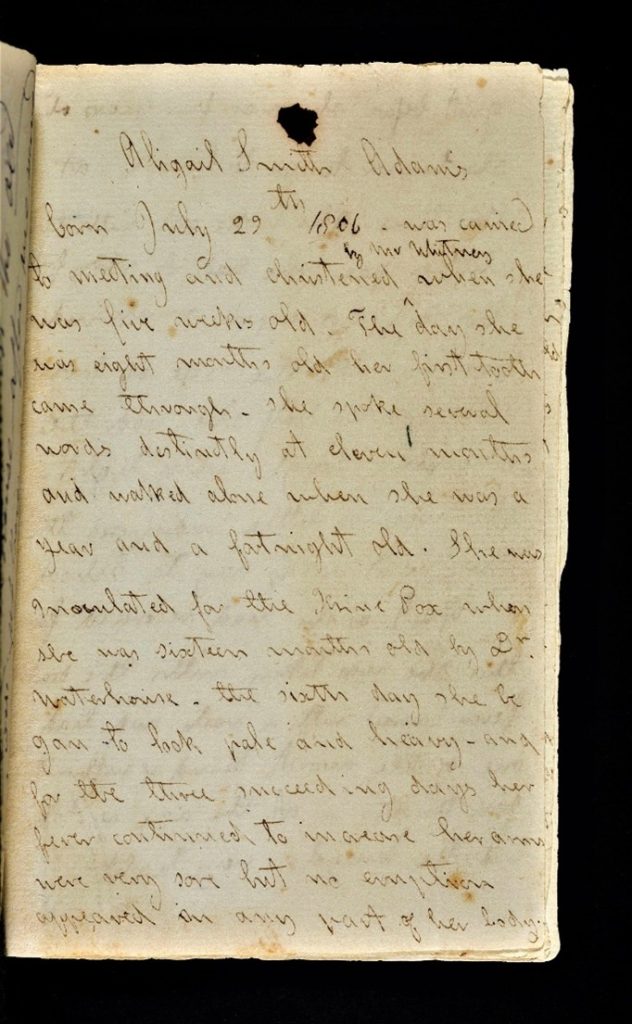 Abigail Smith Adams
born July 29th 1806 - was carried
by Mr Whitney
to meeting and christened when she
was five weeks old - The day she
was eight months old her first tooth
came through - she spoke several
words destinctly at eleven months
and walked alone when she was a
year and a fortnight old. She was
inoculated for the Kine Pox when
she was sixteen months old by Dr.
Waterhouse - the sixth day she be
gan to look pale and heavy - and
for the three succeeding days her
fever continued to increase her arms
were very sore but no eruption
appeared on any part of her body.